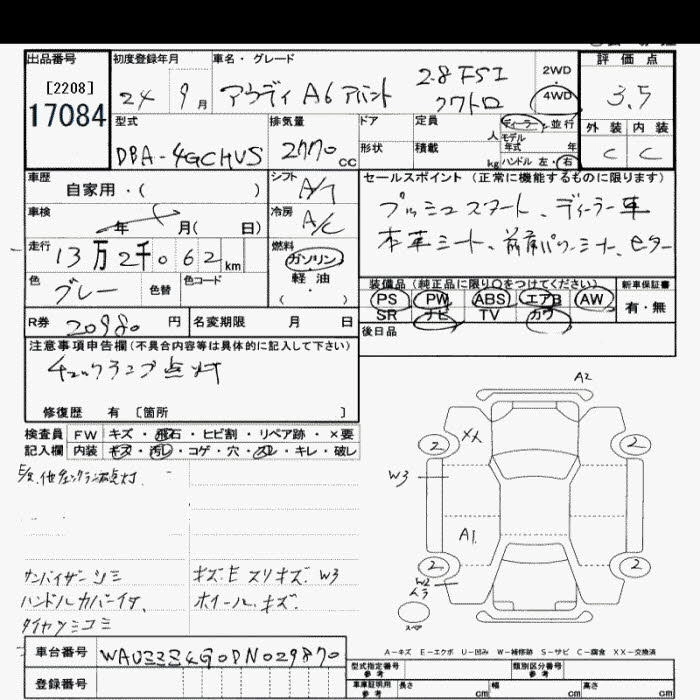 出品番号 初度登録年月 車名・グレード 2WD 評価点
[2208] 24 9月 アウディ A6 アバント 2.8 FSI クワトロ 4WD 3.5
17084 型式 排気量 ドア 定員 人 ディーラー・並行 外装 内装
DBA-4GCHVS 2770 cc 形状 積載 kg モデル年式 年 ハンドル 左・右 C C
車歴 シフト A/T セールスポイント (正常に機能するものに限ります)
自家用・( ) プッシュスタート、ディーラー車
車検 年 月( 日) 冷房 A/C 本革シート、前席パワーシート、
走行 13万2千062km 燃料 ガソリン
色 グレー 色替 色コード 軽油 装備品 (純正品に限り〇をつけてください) 新車保証書
・( ) PS PW ABS エアB AW 有・無
R券 20980円 名変期限 月 日 SR ナビ TV カワ
後日品
注意事項申告欄 (不具合内容等は具体的に記入して下さい)
チェックランプ点灯
修復歴 有 [箇所 ]
A2
検査員 FW キズ・飛石・ヒビ割・リペア跡・×要
記入欄 内装 キズ・汚レ・コゲ・穴・スレ・キレ・破レ
2 XX 2
W3
A1
サンバイザーシミ キズ・E スリキズ W3
ハンドルカバーイタ、 ホイールキズ
2 2
W2
スペア
A-キズ E-エクボ U-凹み W-補修跡 S-サビ C-腐食 XX-交換済
車台番号
型式指定番号 参考 類別区分番号 参考
登録番号 車庫証明用 参考 長さ cm 幅 cm 高さ cm